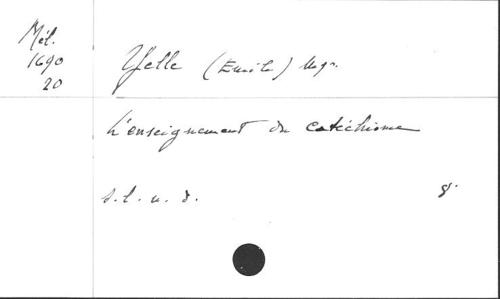 Mél.
1690
20
Yelle (Emile) Mgr.
L'enseignement du catéchisme
s.l.n.d. 8°